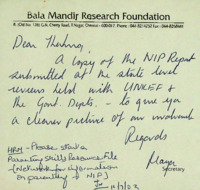 Bala Mandir Research Foundation
Dear
A copy of the NIP Report
submitted at the state level
review held with UNICEF &
the Govt. Depts. - to give you
a clearer picture of our involvement
Regards
Maya
Secretary
Parenting Skills Resource File
(Network for information
on parenting to NIP)